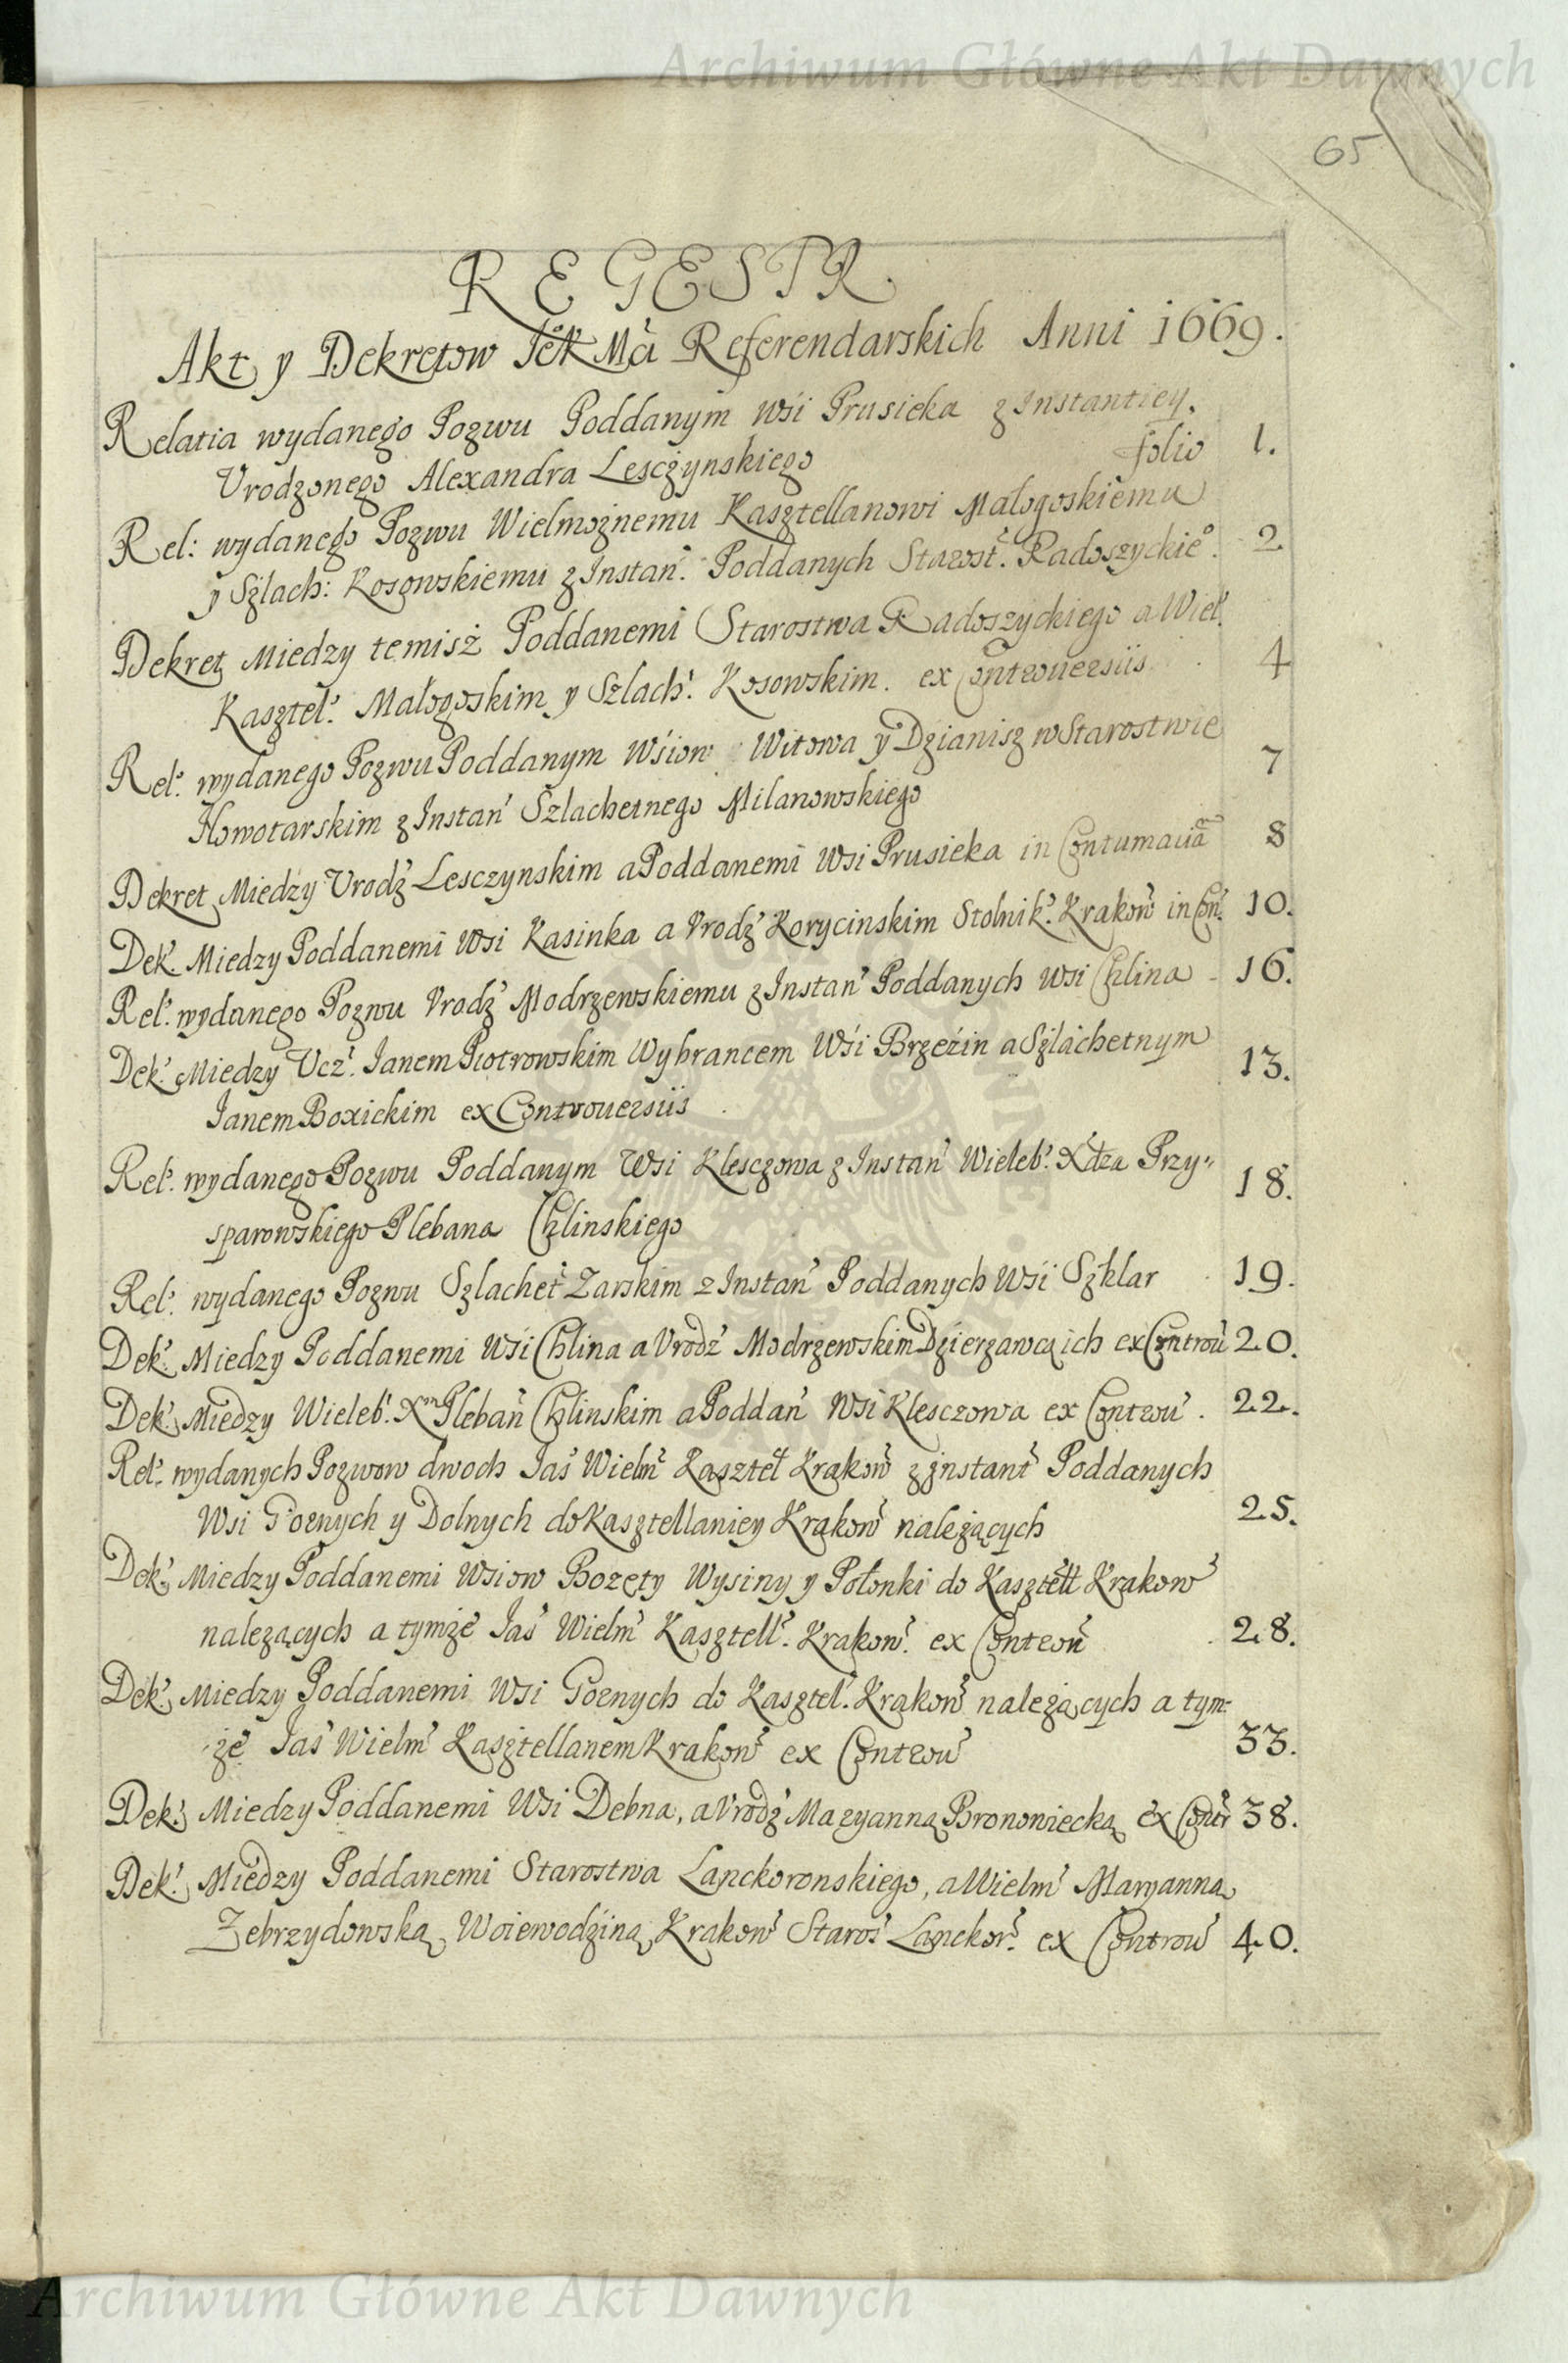 Archiwum Główne Akt Dawnych
65
REGESTR
Akt y Dekretow JeK Mci Referendarskich Anni 1669.
Relatia wydanego Pozwu Poddanym Wsi Prusieka z Instantiey.
Vrodzonego Alexandra Lesczynskiego folio 1.
Rel: wydanego Pozwu Wielmożnemu Kasztellanowi Małogoskiemu
y Szlach: Kosowskiemu z Instan. Poddanych Starost. Radoszyckieo. 2
Dekret Miedzy temisż Poddanemi Starostwa Radoszyckiego a Wiel.
Kasztel. Małogoskim y Szlach. Kosowskim. ex Controuersiis. 4
Rel. wydanego Pozwu Poddanym Wsiow Witowa y Dzianisz w Starostwie 7
Nowotarskim z Instan Szlachetnego Milanowskiego
Dekret Miedzy Vrodz Lesczynskim a Poddanemi Wsi Prusieka in Contumaciã 8
Dek. Miedzy Poddanemi Wsi Kasinka a Vrodz Korycinskim Stolnik. Krakow in Con. 10.
Rel. wydanego Pozwu Vrodz Modrzewskiemu z Instan Poddanych Wsi Chlina 16.
Dek. Miedzy Vcz. Janem Piotrowskim Wybrancem Wsi Brzezin a Szlachetnym 13.
Janem Boxickim ex Controuersiis
Rel. wydanego Pozwu Poddanym Wsi Klesczowa z Instan Wieleb. Xdza Przy-
sparowskiego Plebana Chlinskiego 18.
Rel. wydanego Pozwu Szlachet Zarskim z Instan Poddanych Wsi Szklar 19.
Dek. Miedzy Poddanemi Wsi Chlina a Vrodz Modrzewskim Dzierzawcą ich ex Controu 20.
Dek. Miedzy Wieleb. Xm Pleban Chlinskim a Poddan Wsi Klesczowa ex Controu. 22.
Rel. wydanych Pozwow dwoch Jas Wielm Kasztel Krakow z Instant Poddanych
Wsi Gornych y Dolnych do Kasztellaniey Krakow należących 25.
Dek. Miedzy Poddanemi Wsiow Bozęty Wysiny y Połonki do Kasztell Krakow
nalezących a tymże Jas Wielm Kasztell. Krakow. ex Controu 28.
Dek. Miedzy Poddanemi Wsi Gornych do Kasztel. Krakow należących a tym-
że Jas Wielm Kasztellanem Krakow ex Controu 33.
Dek. Miedzy Poddanemi Wsi Debna, a Vrodz Maryanną Bronowiecką ex Contr 38.
Dek. Miedzy Poddanemi Starostwa Lanckoronskiego, a Wielm Maryanną
Zebrzydowską Woiewodziną Krakow Staros Lanckor. ex Controu 40.
Archiwum Główne Akt Dawnych